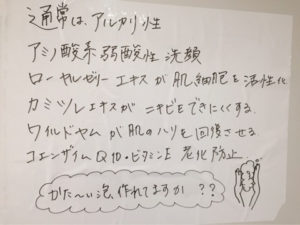 通常は、アルカリ性
アミノ酸系弱酸性 洗顔
ローヤルゼリーエキスが肌細胞を活性化
カミツレエキスがニキビをできにくくする。
ワイルドヤムが肌のハリを回復させる。
コエンザイムQ10・ビタミンE 老化防止
かた〜い泡、作れてますか??